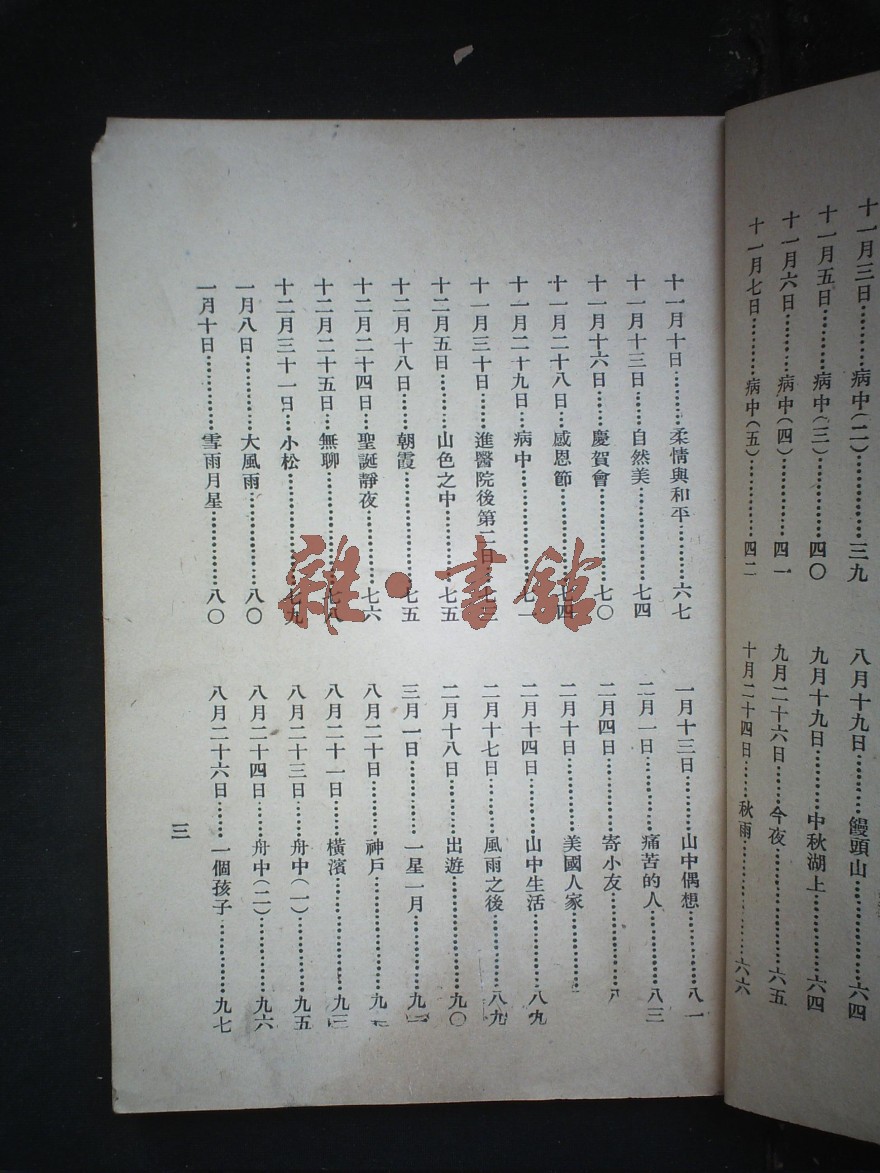 十一月三日…………病中(二)…………三九
十一月五日…………病中(三)…………四〇
十一月六日…………病中(四)…………四一
十一月七日…………病中(五)…………四二
八月十九日…………饅頭山…………六四
九月十九日…………中秋湖上…………六四
九月二十六日………今夜…………六五
十月二十四日………秋雨…………六六
十一月十日…………柔情與和平…………六七
十一月十三日………自然美…………七四
十一月十六日………慶賀會…………七〇
十一月二十八日……感恩節…………
十一月二十九日……病中…………
十一月三十日………進醫院後第二日……
十二月五日…………山色之中…………七五
十二月十八日………朝霞…………七五
十二月二十四日……聖誕靜夜…………七六
十二月二十五日……無聊…………七八
十二月三十一日……小松…………七九
一月八日…………大風雨…………八〇
一月十日…………雪雨月星…………八〇
一月十三日………山中偶想…………八一
二月一日…………痛苦的人…………八三
二月四日…………寄小友…………
二月十日…………美國人家…………
二月十四日………山中生活…………八九
二月十七日………風雨之後…………八九
二月十八日………出遊…………九〇
三月一日…………一星一月…………
八月二十日………神戶…………
八月二十一日……橫濱…………九三
八月二十三日……舟中(一)…………九五
八月二十四日……舟中(二)…………九六
八月二十六日……一個孩子…………九七
三
雜·書館